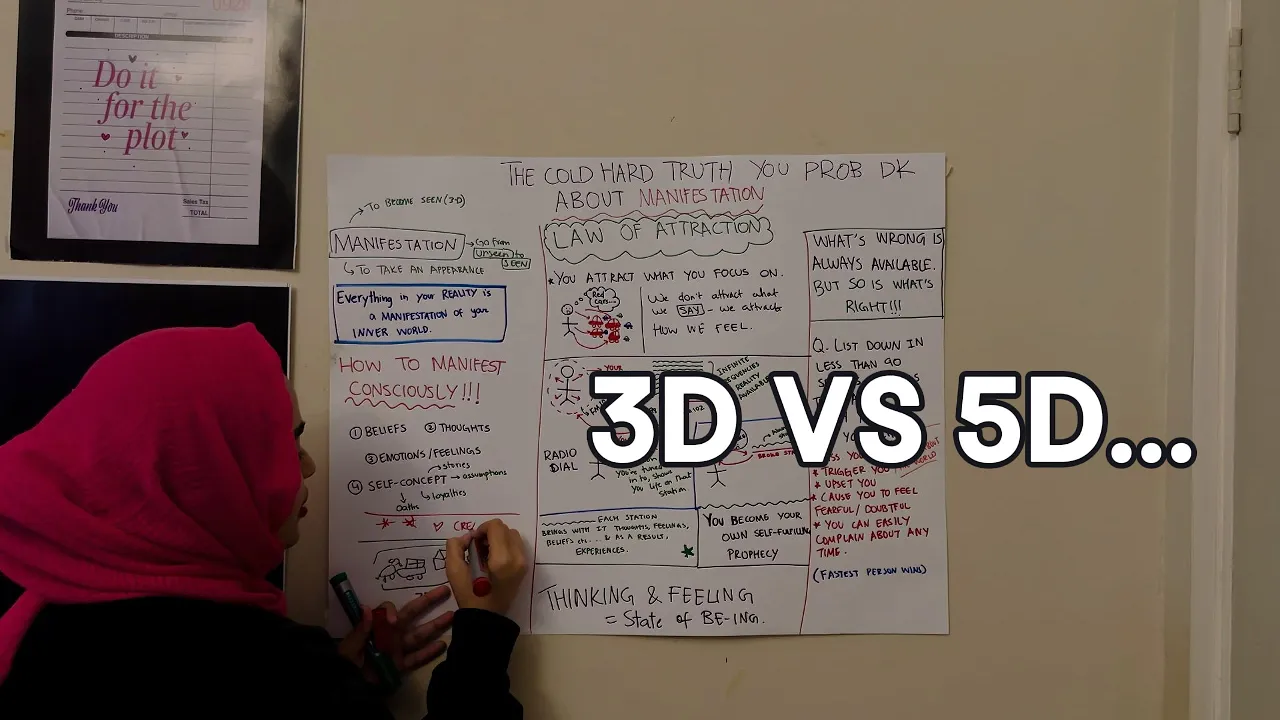 DESCRIPTION
Do it
for the
plot
Thank You
Sales Tax
TOTAL
THE COLD HARD TRUTH YOU PROB DK
ABOUT MANIFESTATION
TO BECOME SEEN (3-D)
MANIFESTATION
GO FROM
UNSEEN to
SEEN
TO TAKE AN APPEARANCE
Everything in your REALITY is
a MANIFESTATION of your
INNER WORLD.
HOW TO MANIFEST
CONSCIOUSLY!!!
① BELIEFS ② THOUGHTS
③ EMOTIONS/FEELINGS
④ SELF-CONCEPT
stories
assumptions
loyalties
Oaths
CRE
LAW OF ATTRACTION
* YOU ATTRACT WHAT YOU FOCUS ON.
Red
cars
We don't attract what
we SAY - we attract
HOW WE FEEL.
YOUR
INFINITE
FREQUENCIES
REALITY
AVAILABLE
RADIO
DIAL
You're tuned
in to, shows
you life on that
station
EACH STATION
BRINGS WITH IT THOUGHTS, FEELINGS,
BELIEFS etc.... & AS A RESULT,
EXPERIENCES.
YOU BECOME YOUR
OWN SELF-FULFILLING
PROPHECY
THINKING & FEELING
= State of BE-ING.
WHAT'S WRONG IS
ALWAYS AVAILABLE.
BUT SO IS WHAT'S
RIGHT!!!
Q. LIST DOWN IN
LESS THAN 90
* TRIGGER YOU
* UPSET YOU
* CAUSE YOU TO FEEL
FEARFUL / DOUBTFUL
* YOU CAN EASILY
COMPLAIN ABOUT ANY
TIME.
(FASTEST PERSON WINS)
3D VS 5D...